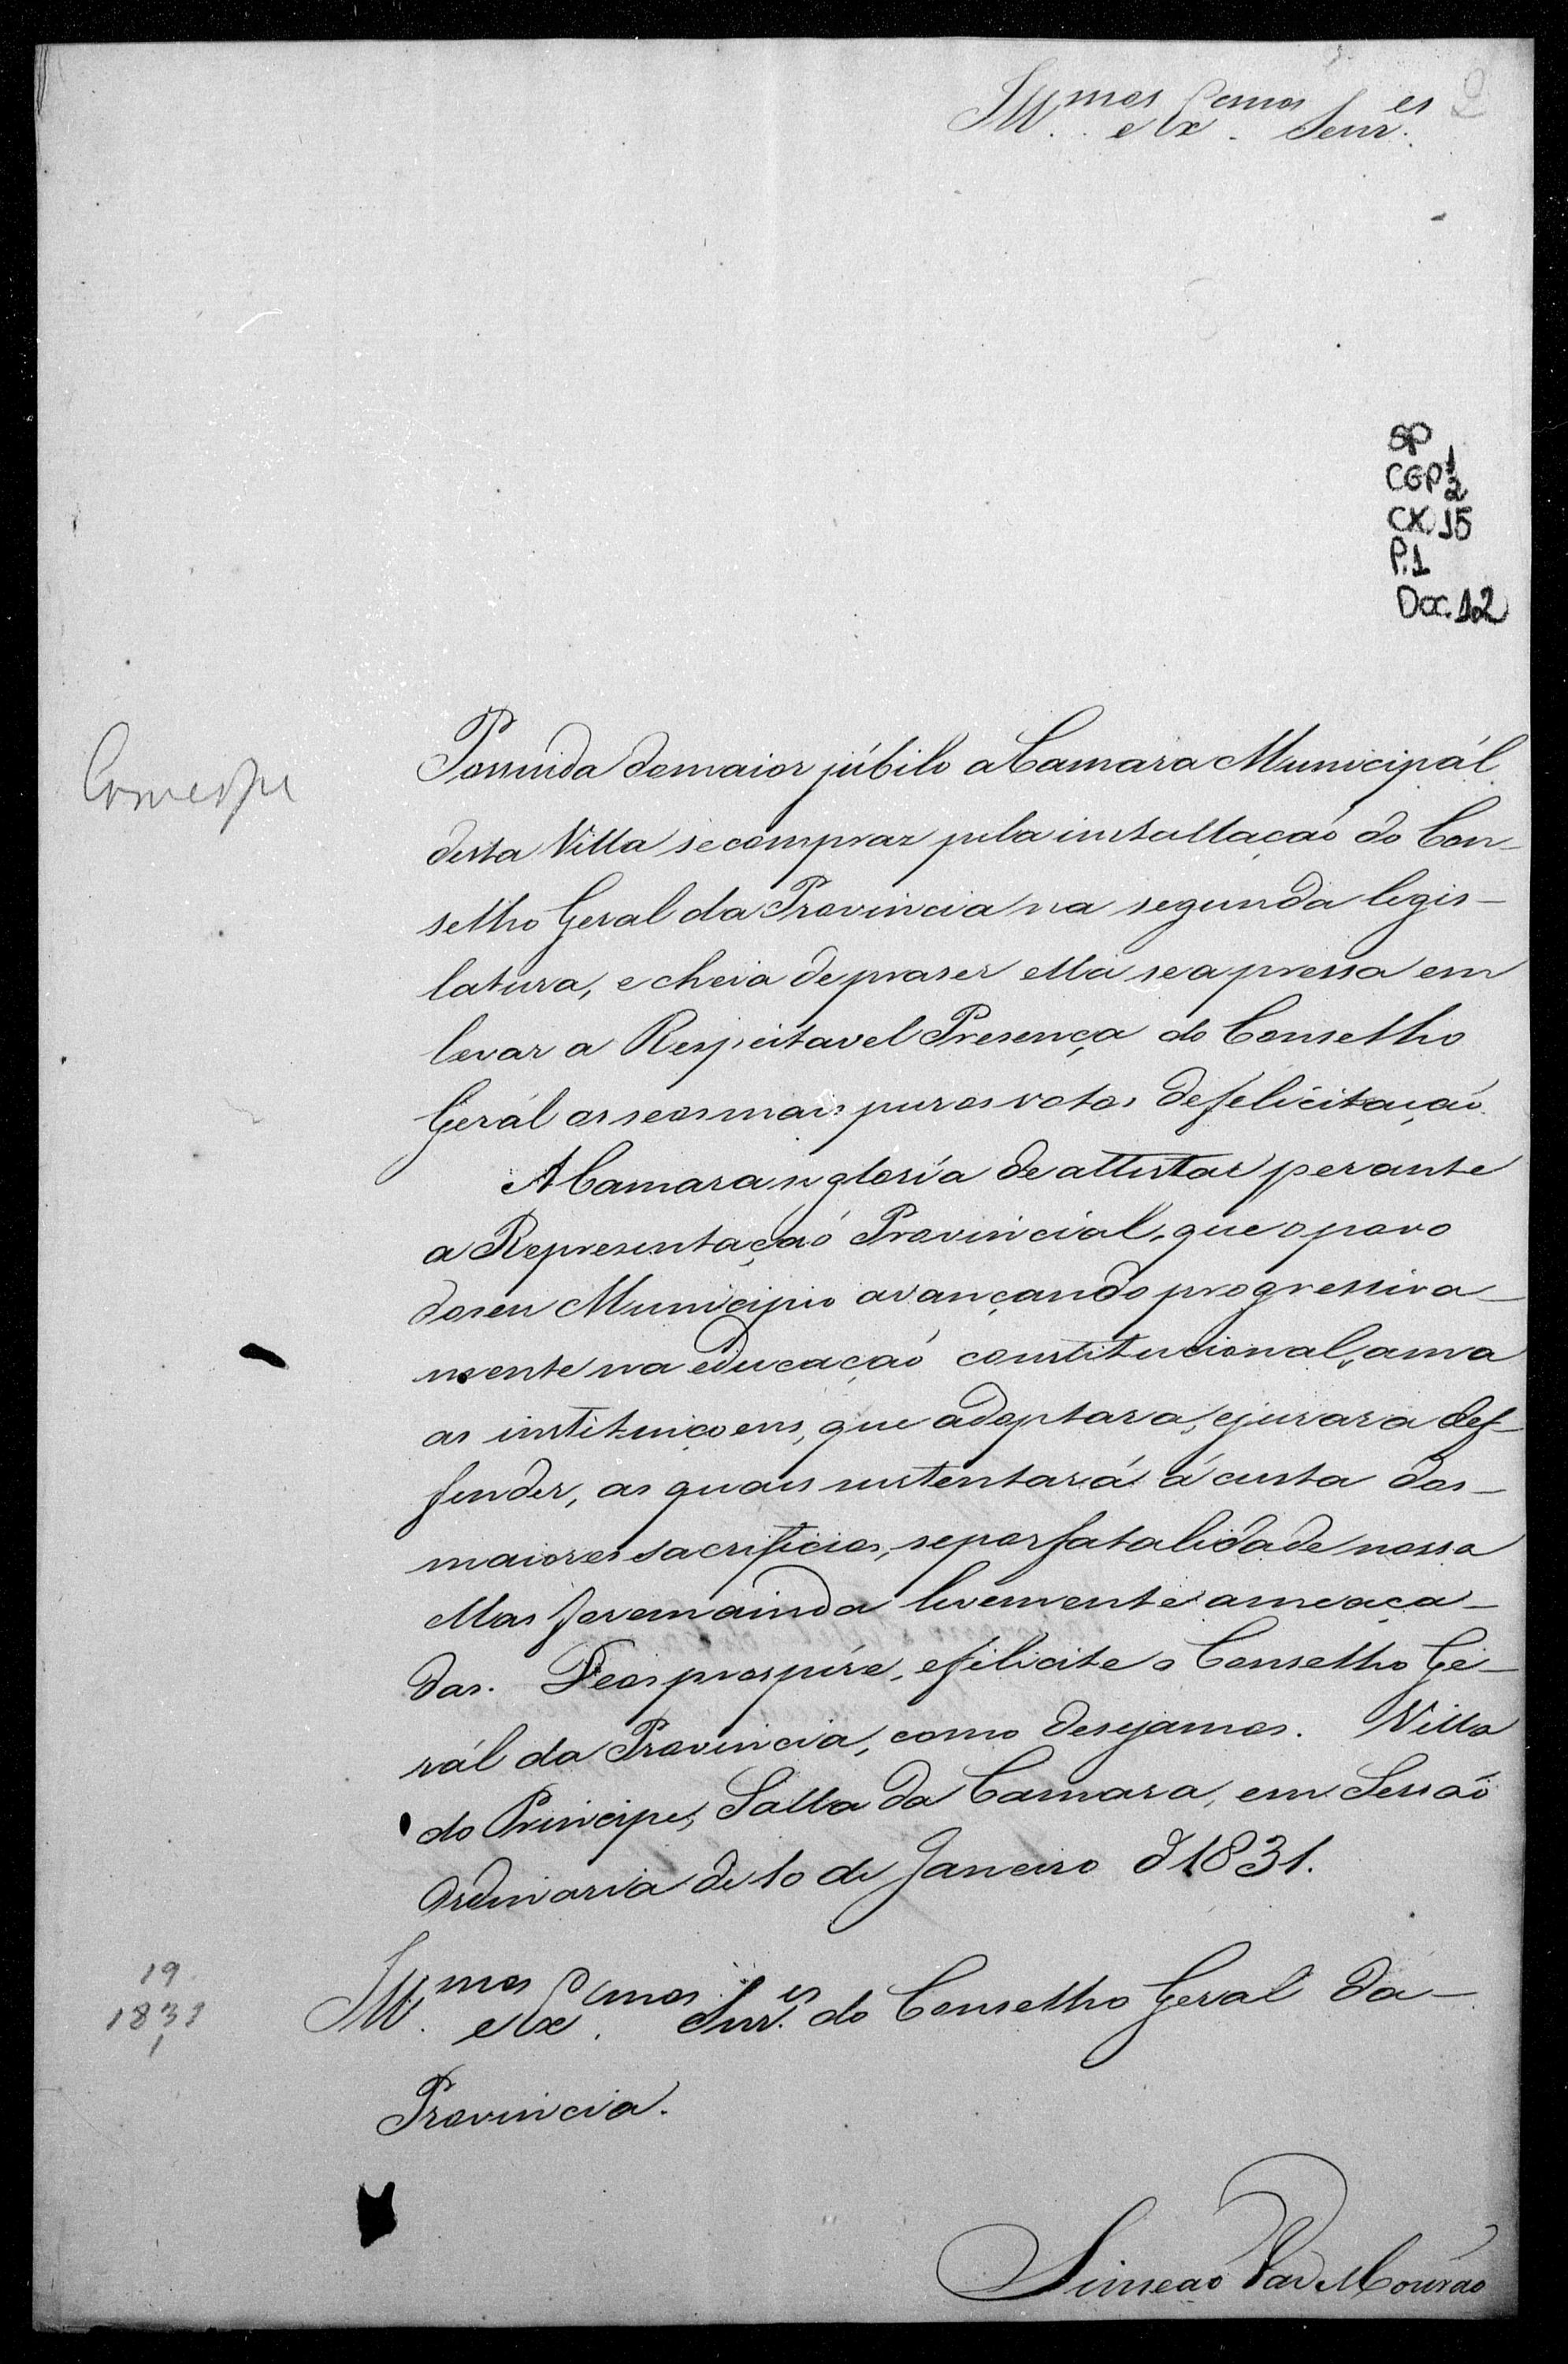 Ill.mos e Ex.mos Senr.es
2
SP
CGP 1/2
CX 15
P.1
Doc. 12
Possuida do maior júbilo a Camara Municipál
desta Villa se compraz pela installação do Con-
selho Geral da Provincia na segunda legis-
latura, e cheia de praser ella se apressa em
levar a Respeitavel Presença do Conselho
Gerál os seos mais puros votos de felicitação.
A Camara se gloría de attestar perante
a Representação Provincial, que o povo
do seu Municipio avançando progressiva-
mente na educação constitucional, ama
as instituiçoens, que adoptara, e jurara def-
fender, as quais sustentará á custa dos-
maiores sacrificios, se por fatalidade nossa
ellas forem ainda levemente ameaça-
das. Deos prospére, e felicite o Conselho Ge-
rál da Provincia, como desejamos. Villa
do Principe, Salla da Camara, em Sessão
Ordinaria de 10 de Janeiro d'1831.
19
1831
1
Ill.mos e Ex.mos Snr.es do Conselho Geral da-
Provincia.
Simeão Vaz Mourão